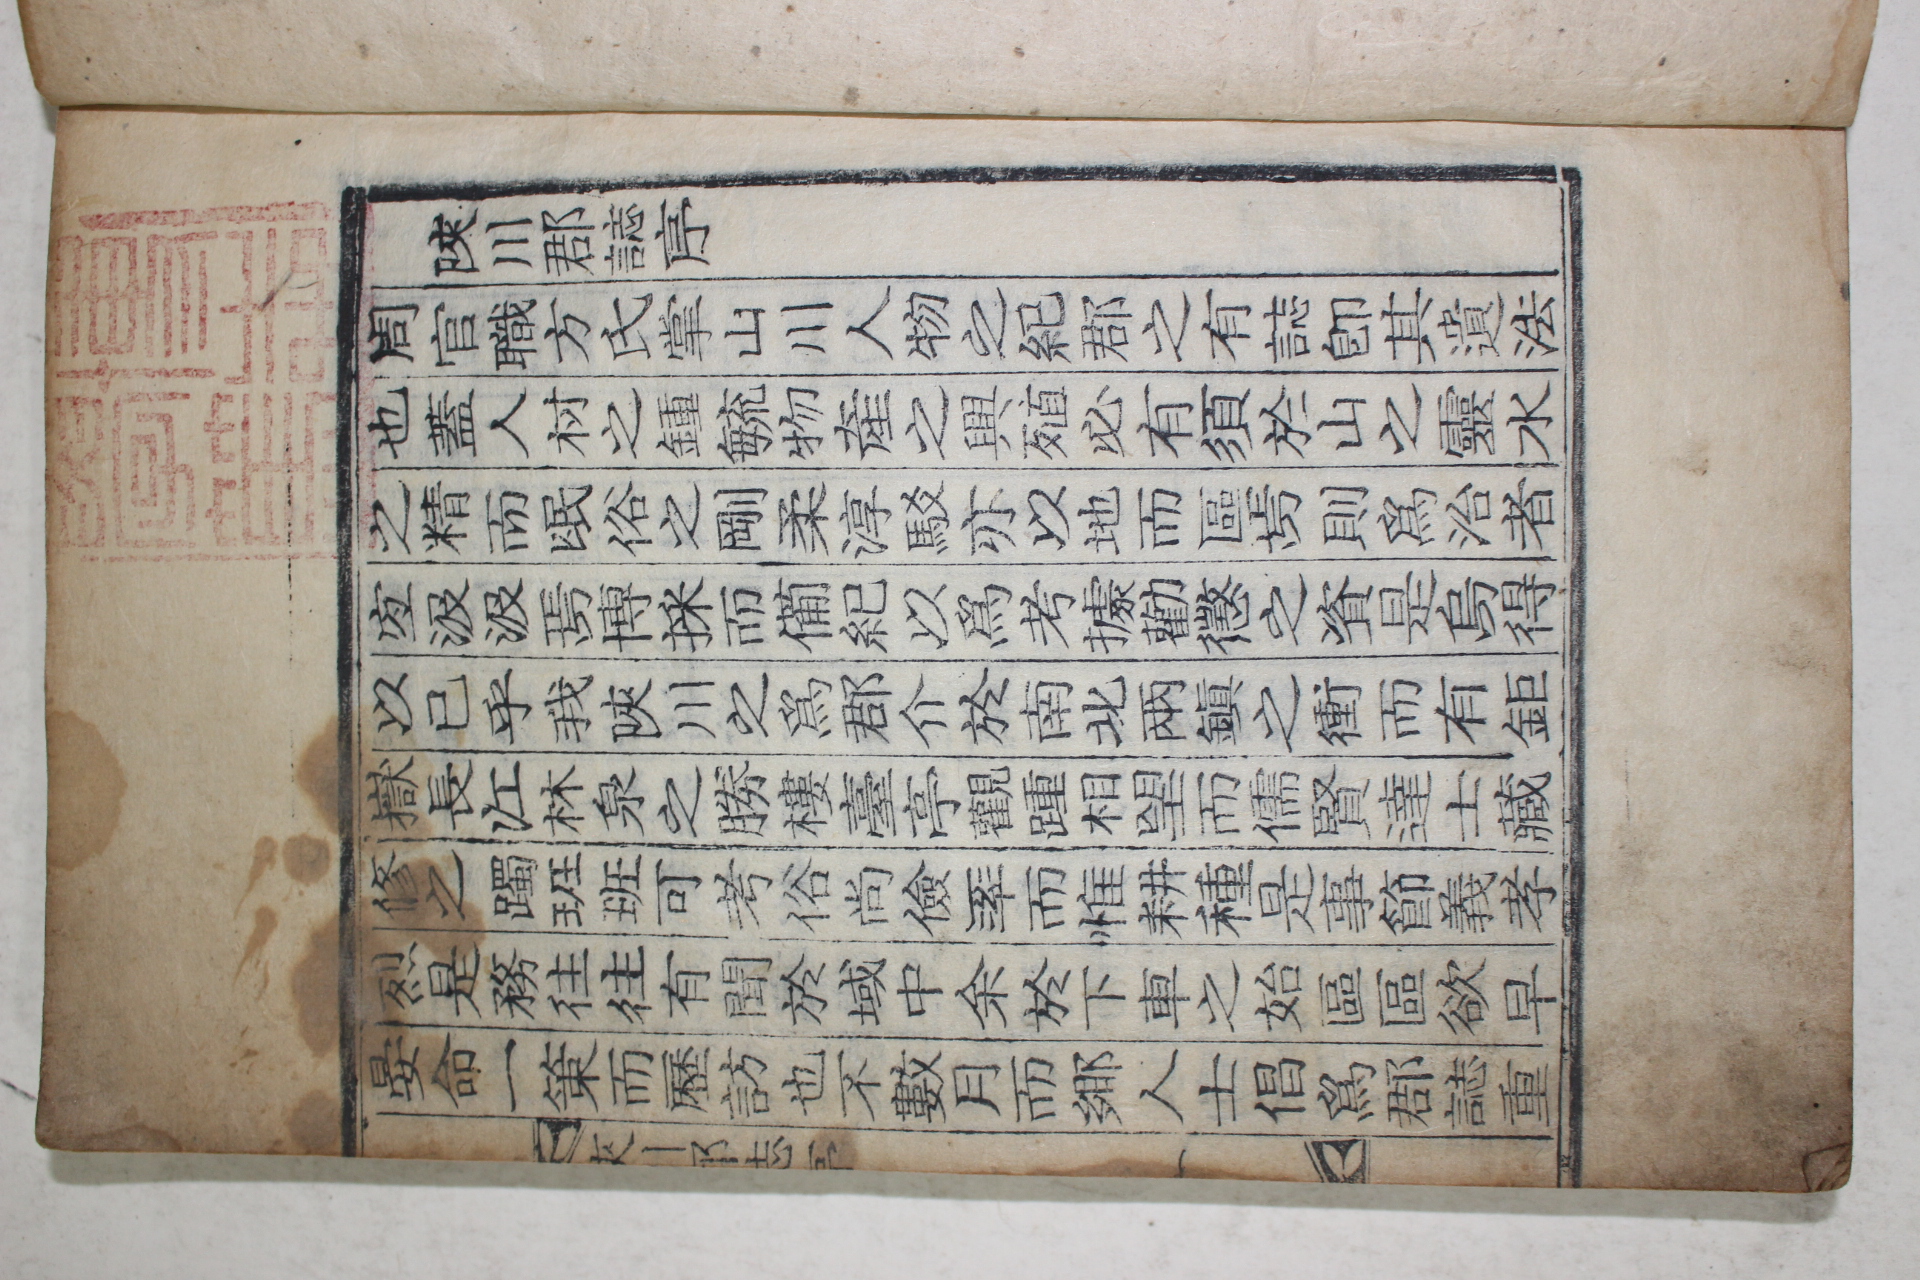 陜川郡誌序
周官職方氏掌山川人物之紀郡之有誌卽其遺法
也蓋人材之鍾毓物產之興殖必有須於山之靈水
之精而氓俗之剛柔淳駁亦以地而區焉則爲治者
宜汲汲焉博採而備紀以爲考據勸懲之資是烏得
以已乎我陜川之爲郡介於南北兩鎭之衝而有鉅
嶽長江林泉之勝樓臺亭觀踵相望而儒賢達士藏
修之躅班班可考俗尚儉率而惟耕種是事節義孝
烈是務往往有聞於域中余於下車之始區區欲早
晏命一策而歷訪也不數月而鄉人士倡爲郡誌重
陜川郡誌序
一